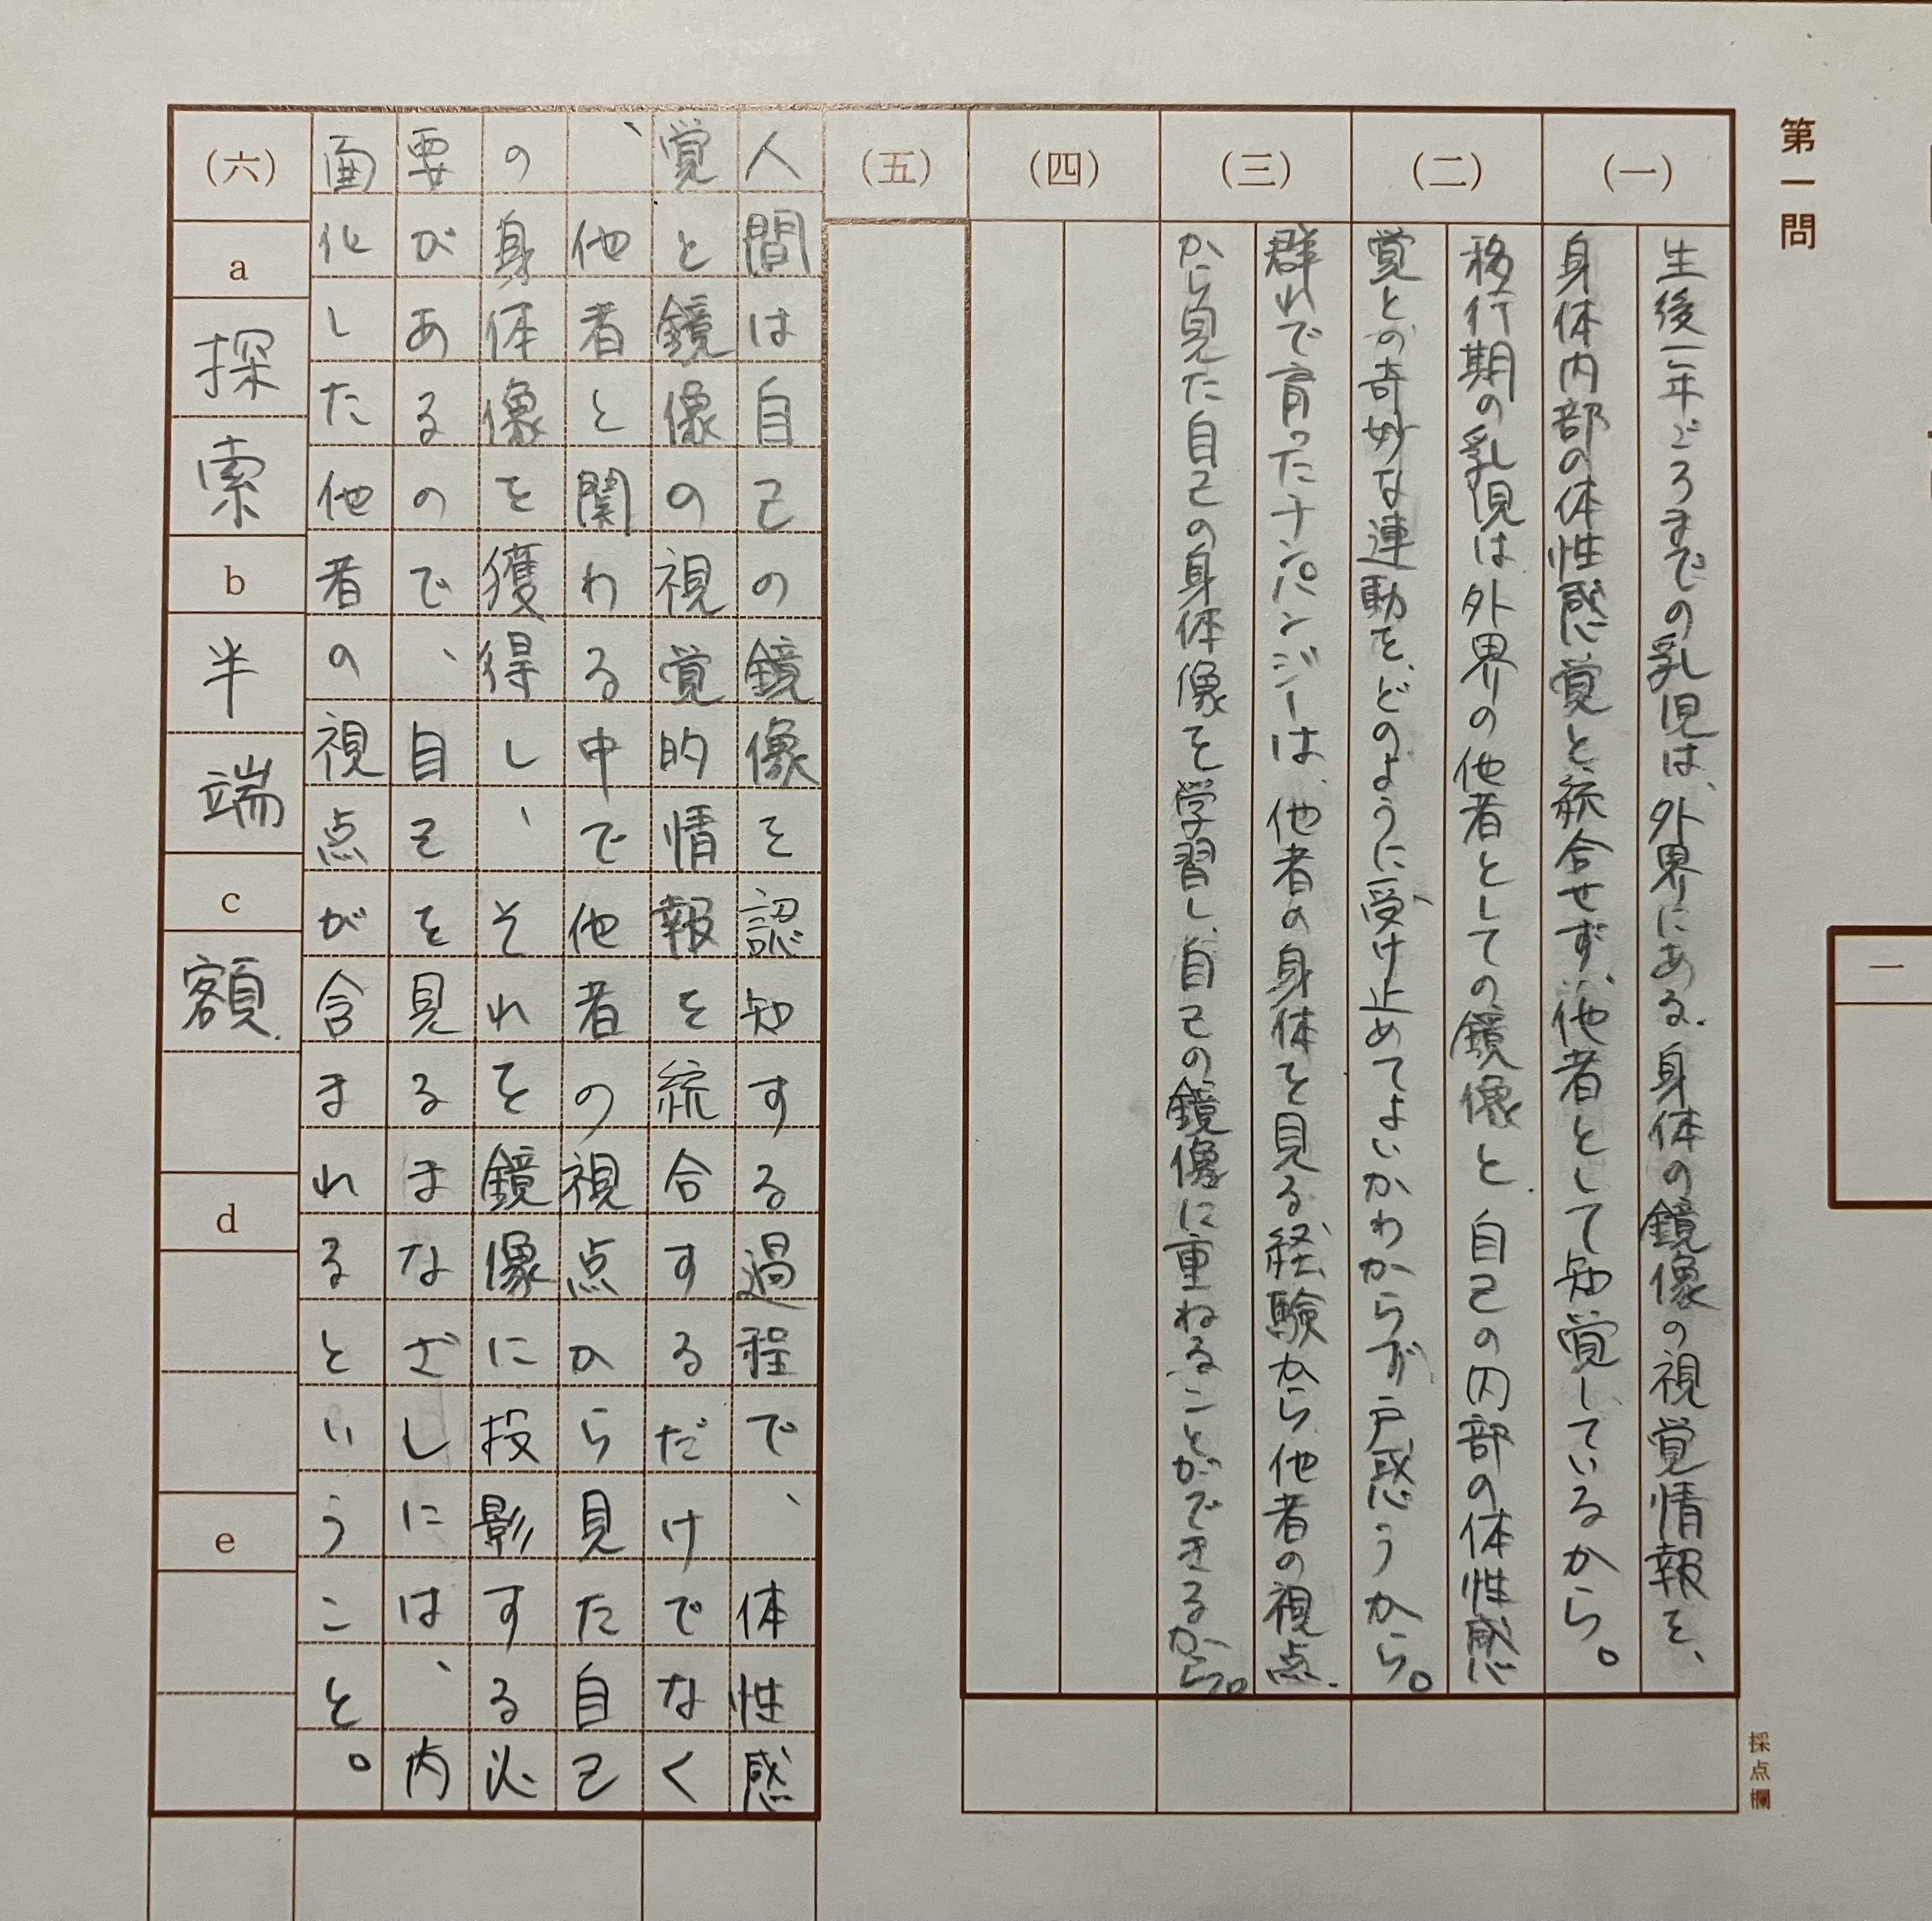 第一問
(一)
生後一年ごろまでの乳児は、外界にある、身体の鏡像の視覚情報を、
身体内部の体性感覚と統合せず、他者として知覚しているから。
(二)
移行期の乳児は外界の他者としての鏡像と、自己の内部の体性感
覚との奇妙な連動を、どのように受け止めてよいかわからず戸惑うから。
(三)
群れで育ったチンパンジーは、他者の身体を見る経験から他者の視点
から見た自己の身体像を学習し、自己の鏡像に重ねることができるから。
(四)
(五)
人間は自己の鏡像を認知する過程で、体性感
覚と鏡像の視覚的情報を統合するだけでなく
、他者と関わる中で他者の視点から見た自己
の身体像を獲得し、それを鏡像に投影する必
要があるので、自己を見るまなざしには、内
面化した他者の視点が含まれるということ。
(六)
a
探索
b
半端
c
額
d
e
採点欄
一